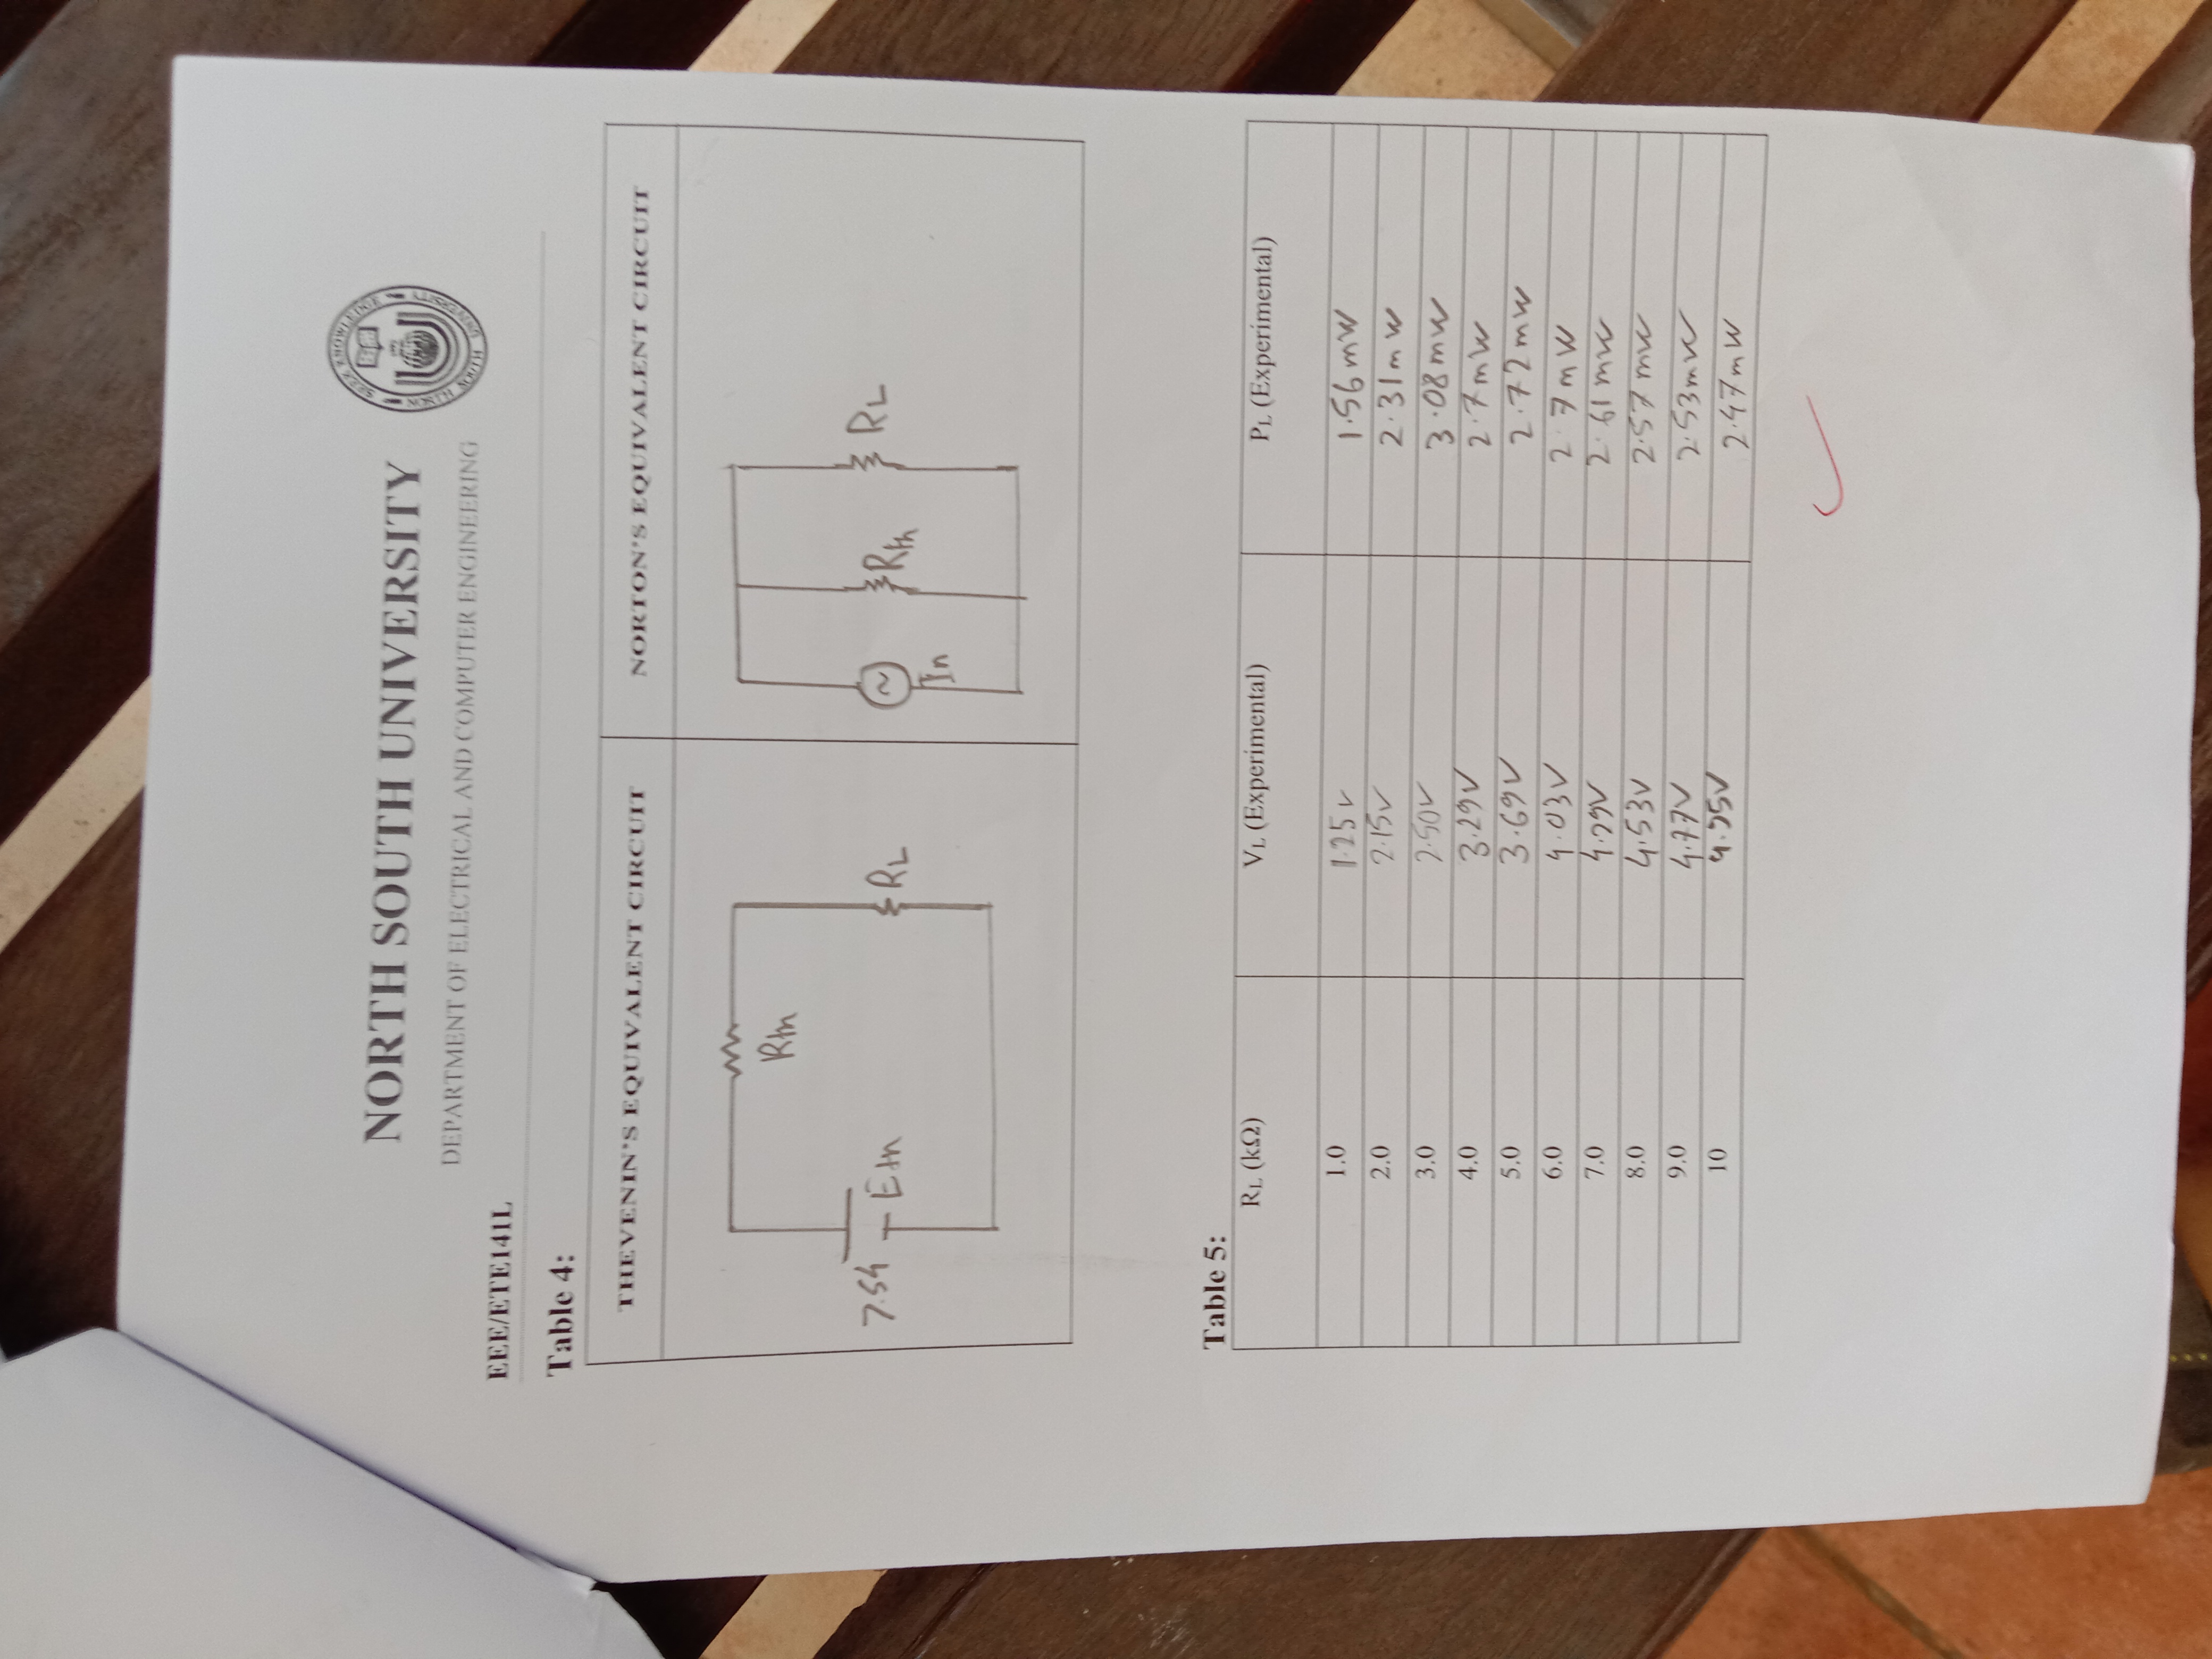 NORTH SOUTH UNIVERSITY
SEEK KNOWLEDGE
NORTH SOUTH UNIVERSITY
DEPARTMENT OF ELECTRICAL AND COMPUTER ENGINEERING
EEE/ETE141L
Table 4:
THEVENIN'S EQUIVALENT CIRCUIT NORTON'S EQUIVALENT CIRCUIT
Rth
7.54 Eth RL
In Rth RL
Table 5:
RL (kΩ) VL (Experimental) PL (Experimental)
1.0 1.25v 1.56mW
2.0 2.15v 2.31mW
3.0 2.50v 3.08mW
4.0 3.29V 2.7mW
5.0 3.69V 2.72mW
6.0 4.03V 2.7mW
7.0 4.29V 2.61mW
8.0 4.53V 2.57mW
9.0 4.77V 2.53mW
10 4.95V 2.47mW